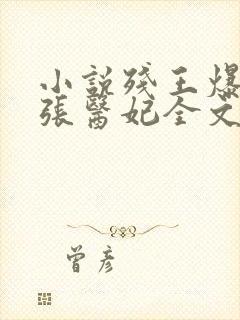 小説殘王爆
張醫妃全文
曾彥